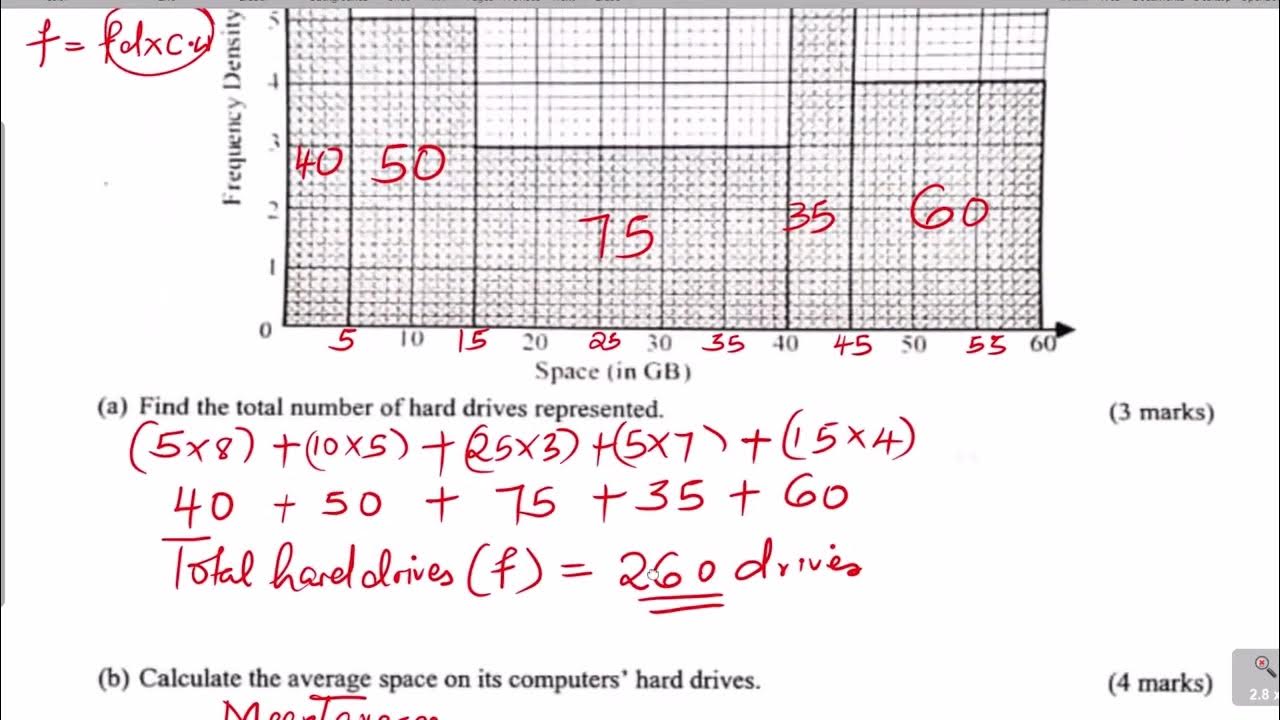 f = fdxc.w
5
4
3
2
1
0
Frequency Density
40 50 75 35 60
5 10 15 20 25 30 35 40 45 50 55 60
Space (in GB)
(a) Find the total number of hard drives represented. (3 marks)
(5x8) + (10x5) + (25x3) + (5x7) + (15x4)
40 + 50 + 75 + 35 + 60
Total hard drives (f) = 260 drives
(b) Calculate the average space on its computers' hard drives. (4 marks)
2.8 x